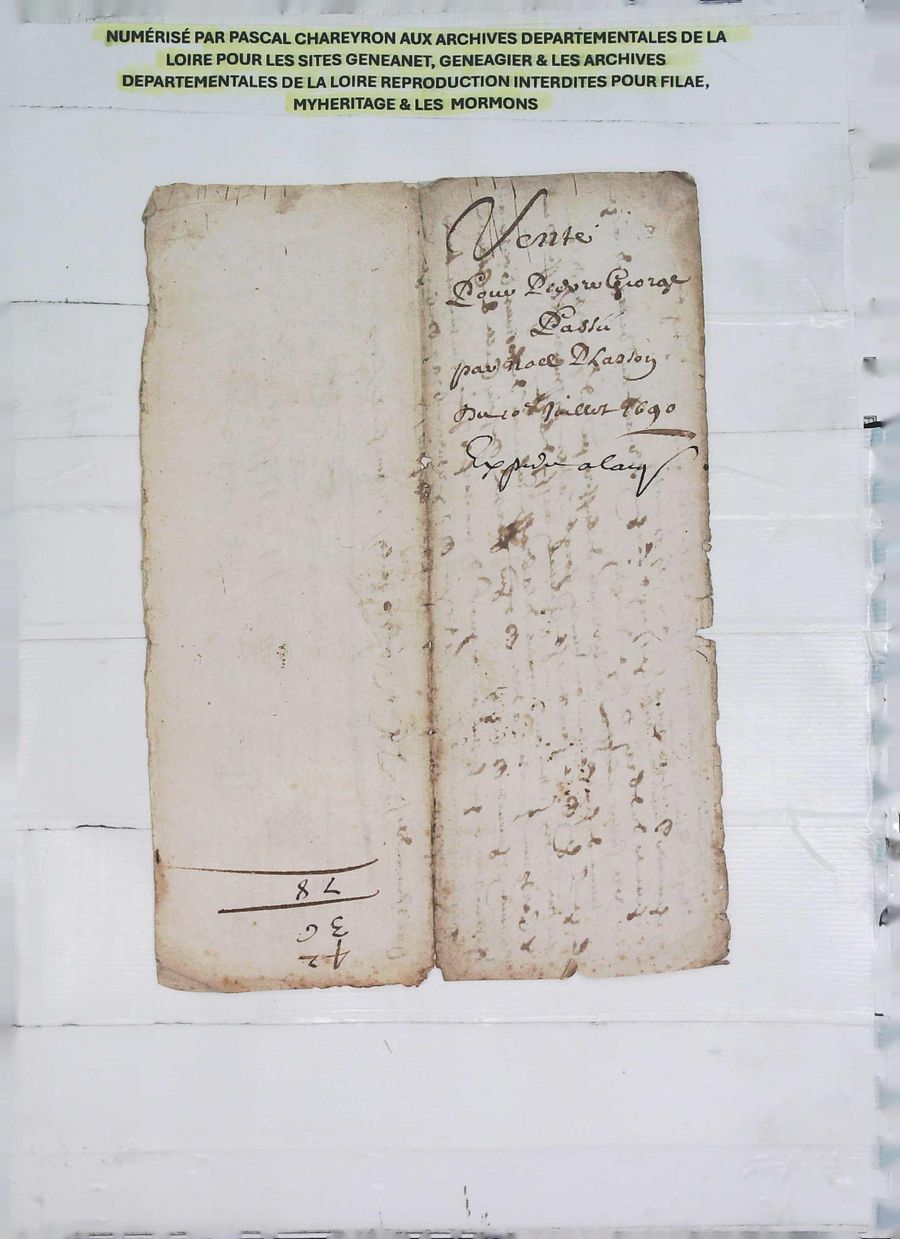 NUMÉRISÉ PAR PASCAL CHAREYRON AUX ARCHIVES DEPARTEMENTALES DE LA
LOIRE POUR LES SITES GENEANET, GENEAGIER & LES ARCHIVES
DEPARTEMENTALES DE LA LOIRE REPRODUCTION INTERDITES POUR FILAE,
MYHERITAGE & LES MORMONS
Vente
Pour George
par noel
Du 10e Juillet 1690
42
36
78